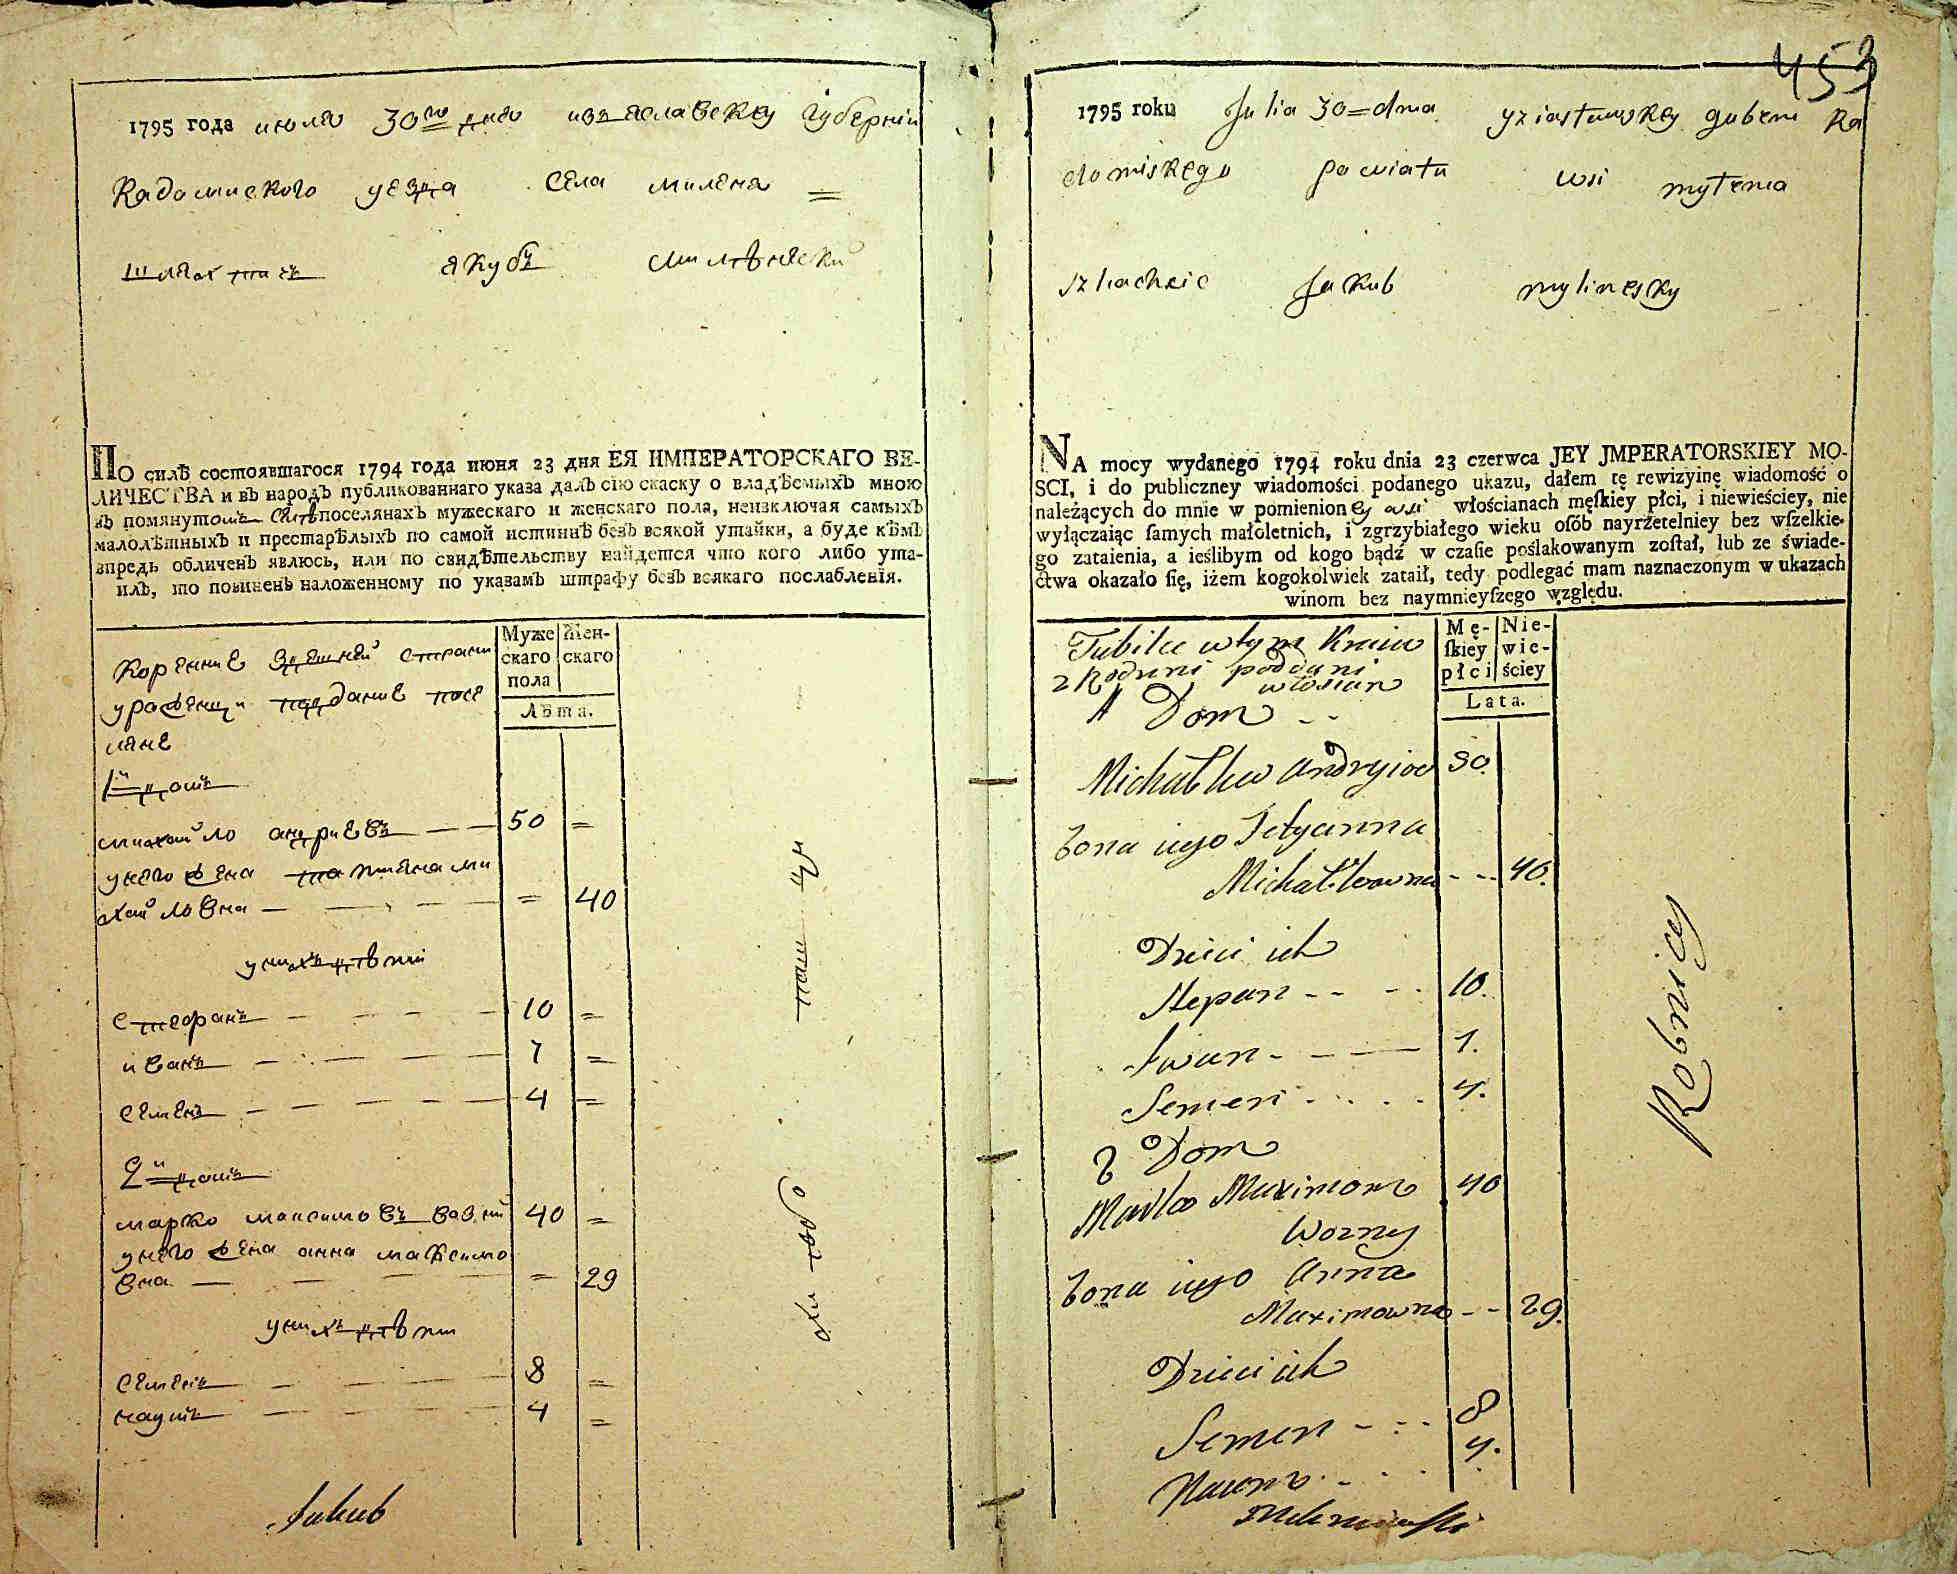 1795 года июля 30го дня изяславскеy губерніи
Радомиского уезда села миленя =
шляхтич якубъ милѣнеский
По силѣ состоявшагося 1794 года июня 23 дня ЕЯ ИМПЕРАТОРСКАГО ВЕ-
ЛИЧЕСТВА и въ народъ публикованнаго указа далъ сію скаску о владѣемыхъ мною
въ помянутомъ селѣ поселянахъ мужескаго и женскаго пола, неизключая самыхъ
малолѣтныхъ и престарѣлыхъ по самой истиннѣ безъ всякой утайки, а буде кѣмъ
впредь обличенъ явлюсь, или по свидѣтельству найдется что кого либо ута-
илъ, то повиненъ наложенному по указамъ штрафу безъ всякаго послабленія.
Муже
скаго
пола
Жен-
скаго
Лѣта.
Корение здешней страни
поддание посе
ляне
1й домъ
михайло андриевъ — — 50 =
унего жена татияна ми
хайловна — — — — = 40
унихъ дѣти
стефанъ — — — — 10 =
иванъ — — — — 7 =
семенъ — — — — 4 =
2й домъ
марко максимовъ возний 40 =
унего жена анна максимо
вна — — — — = 29
унихъ дѣти
семенъ — — — 8 =
наумъ — — — 4 =
Jakub
453
1795 roku Julia 30=dnia yziasławskey guberni Ra
domiskego powiatu wsi mytenia
szlachcic Jakub mylinesky
NA mocy wydanego 1794 roku dnia 23 czerwca JEY JMPERATORSKIEY MO-
SCI, i do publiczney wiadomości podanego ukazu, dałem tę rewizyinę wiadomość o
należących do mnie w pomienioney wsi włościanach męſkiey płci, i niewieściey, nie
wyłączaiąc ſamych małoletnich, i zgrzybiałego wieku oſób nayrzetelniey bez wſzelkie-
go zataienia, a ieślibym od kogo bądź w czaſie poślakowanym zoſtał, lub ze świade-
ctwa okazało ſię, iżem kogokolwiek zataił, tedy podlegać mam naznaczonym w ukazach
winom bez naymnieyſzego względu.
Mę-
ſkiey
płci
Nie-
wie-
ściey
Lata.
Tubilce wtym Kraiu
zRodzeni poddani
włoscian
1 Dom - -
Michałko Andryiow 50.
Żona iego Tetyanna
Michałkowna - - - 40.
Dzieci ich
Stepan - - - - 10.
Iwan - - - — 7.
Semen - - - - - 4.
2 Dom
Marko Maximow 40
Wozny
Żona iego Anna
Maximowna - - 29.
Dzieci ich
Semen - - - 8
Naum - - - 4.
Robnicy